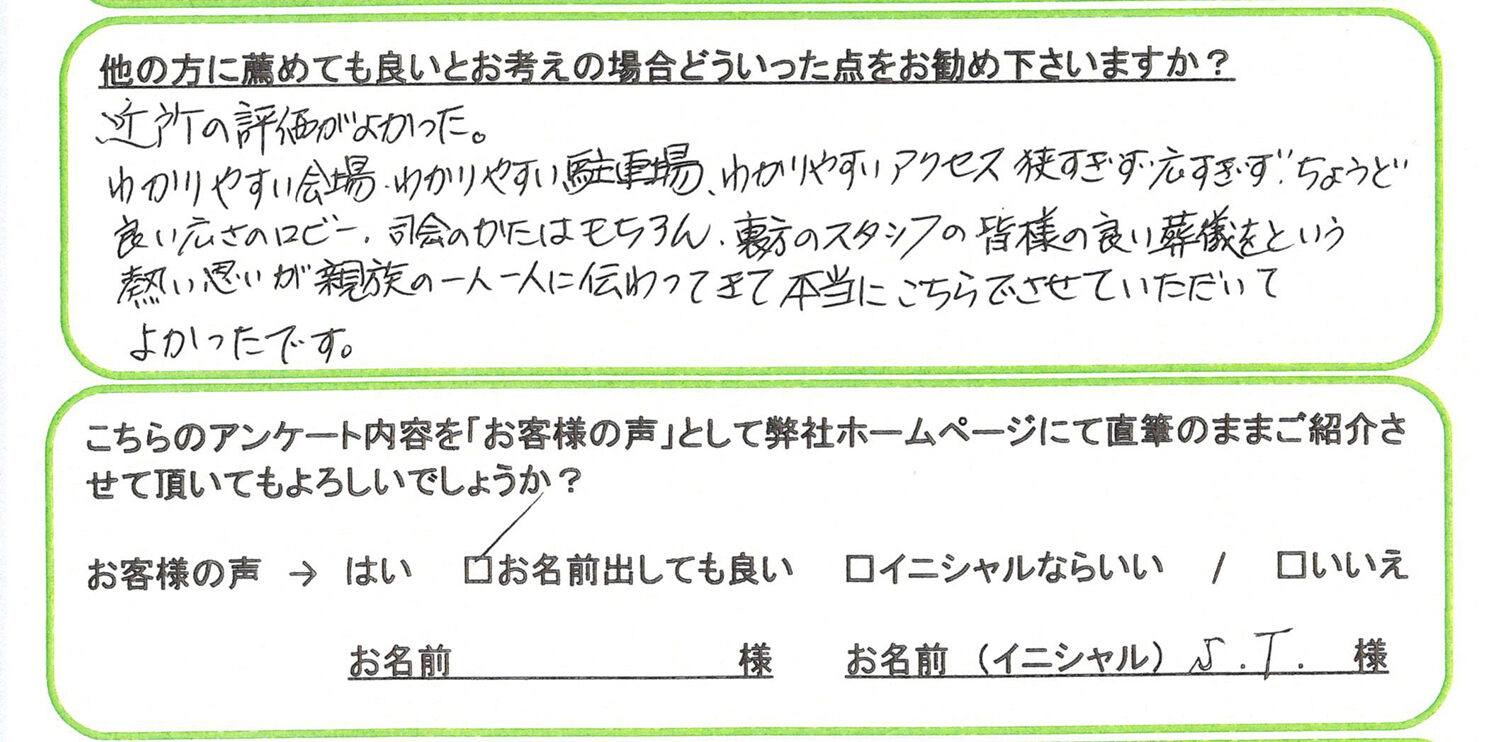 他の方に薦めても良いとお考えの場合どういった点をお勧め下さいますか?
近所の評価がよかった。
わかりやすい会場、わかりやすい駐車場、わかりやすいアクセス 狭すぎず、広すぎず、ちょうど
良い広さのロビー、司会のかたはもちろん、裏方のスタッフの皆様の良い葬儀をという
熱い思いが親族の一人一人に伝わってきて本当にこちらでさせていただいて
よかったです。
こちらのアンケート内容を「お客様の声」として弊社ホームページにて直筆のままご紹介さ
せて頂いてもよろしいでしょうか?
お客様の声 → はい □お名前出しても良い □イニシャルならいい / □いいえ
お名前 様 お名前 (イニシャル) S.T. 様